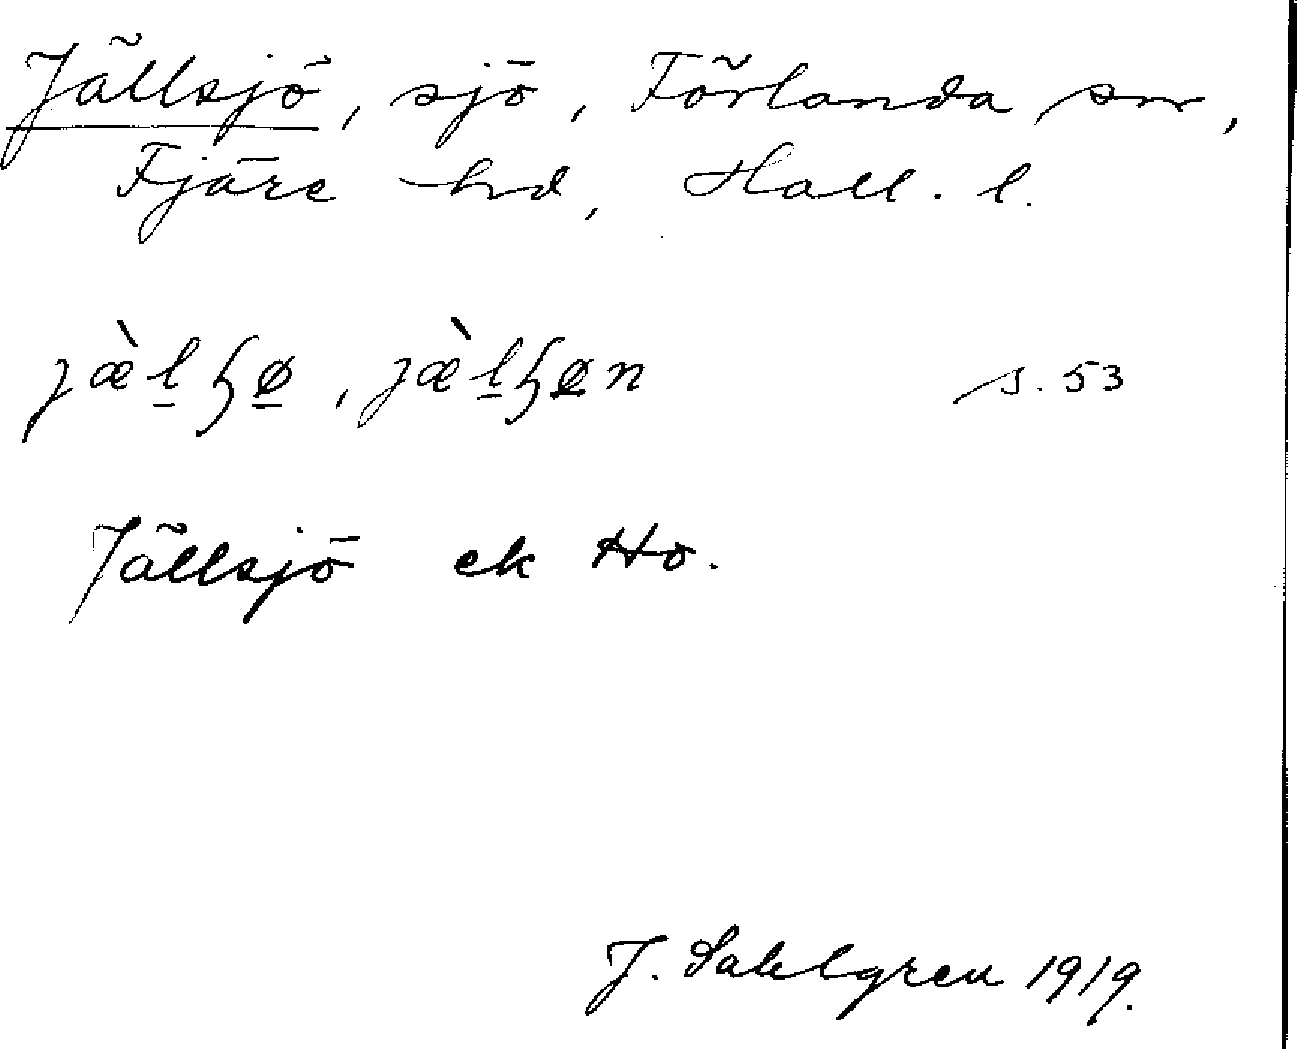 Jällsjö, sjö, Förlanda sn,
Fjäre hd, Hall. l.
jæ̀l̲ɧø̲, jæ̀l̲ɧø̲n s. 53
Jällsjö ek Ho.
J. Sahlgren 1919.